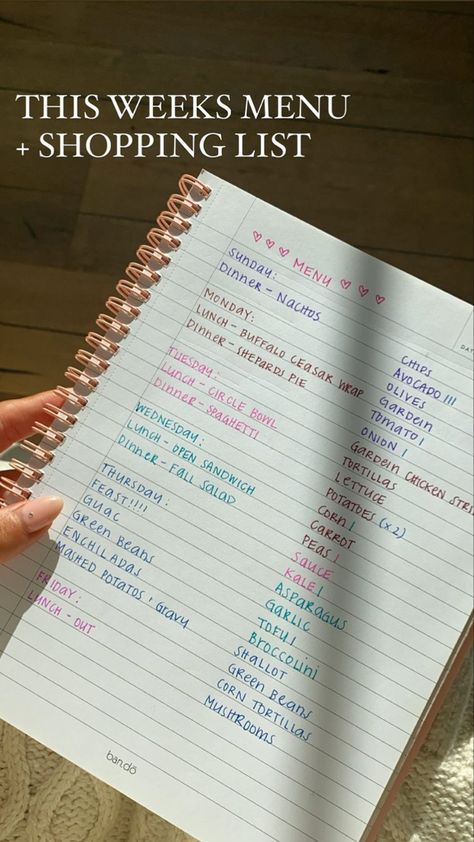 THIS WEEKS MENU
+ SHOPPING LIST
♡♡♡ MENU ♡♡♡
SUNDAY:
DINNER - NACHOS
MONDAY:
LUNCH - BUFFALO CEASAR WRAP
DINNER - SHEPARDS PIE
TUESDAY:
LUNCH - CIRCLE BOWL
DINNER - SPAGHETTI
WEDNESDAY:
LUNCH - OPEN SANDWICH
DINNER - FALL SALAD
THURSDAY:
FEAST!!!!
GUAC
GREEN BEANS
ENCHILADAS
MASHED POTATOS + GRAVY
FRIDAY:
LUNCH - OUT
CHIPS
AVOCADO!!!
OLIVES
GARDEIN
TOMATO!
ONION!
GARDEIN CHICKEN STRI
TORTILLAS
LETTUCE
POTATOES (x2)
CORN!
CARROT
PEAS!
SAUCE
KALE!
ASPARAGUS
GARLIC
TOFU!
BROCCOLINI
SHALLOT
GREEN BEANS
CORN TORTILLAS
MUSHROOMS
ban.dō